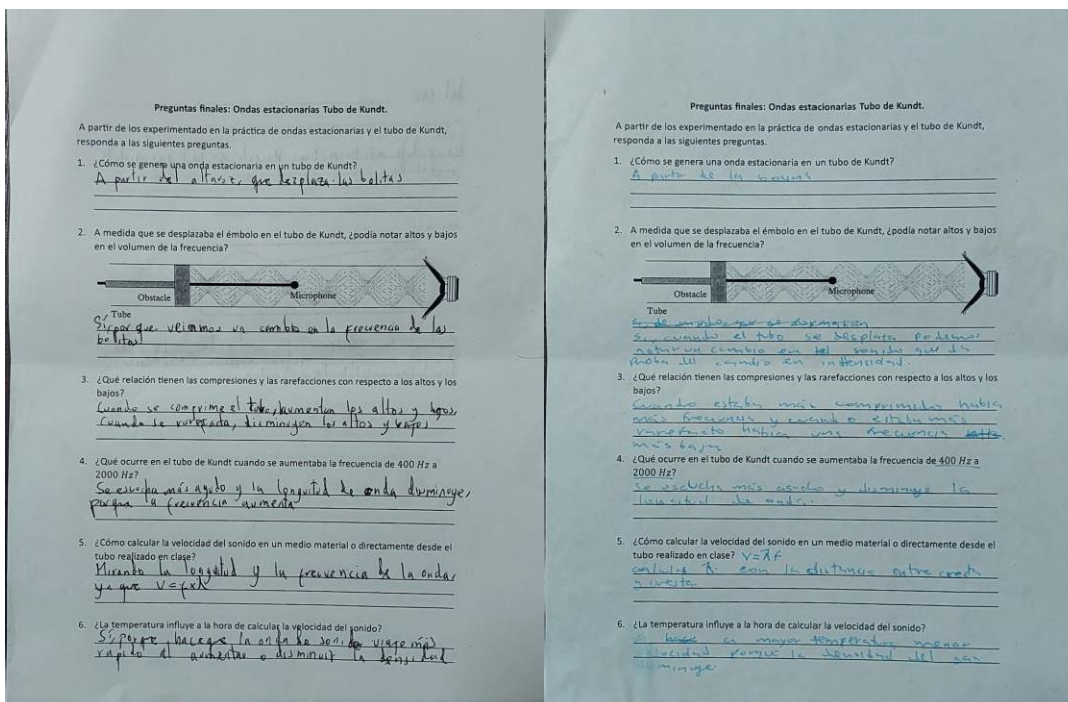 Preguntas finales: Ondas estacionarias Tubo de Kundt.
A partir de los experimentado en la práctica de ondas estacionarias y el tubo de Kundt,
responda a las siguientes preguntas.
1. ¿Cómo se genera una onda estacionaria en un tubo de Kundt?
A partir del altavoz, que desplaza las bolitas
2. A medida que se desplazaba el émbolo en el tubo de Kundt, ¿podía notar altos y bajos
en el volumen de la frecuencia?
Obstacle
Microphone
Tube
Sí, por que veiamos un cambio en la frecuencia de las
bolitas
3. ¿Qué relación tienen las compresiones y las rarefacciones con respecto a los altos y los
bajos?
Cuando se comprime el tubo, aumentan los altos y bajos,
Cuando se disminuyen los altos y bajos
4. ¿Qué ocurre en el tubo de Kundt cuando se aumentaba la frecuencia de 400 Hz a
2000 Hz?
Se escucha más agudo y la longuitud de onda disminuye,
porque la frecuencia aumenta
5. ¿Cómo calcular la velocidad del sonido en un medio material o directamente desde el
tubo realizado en clase?
Mirando la longuitud y la frecuencia de la onda,
ya que V = f x λ
6. ¿La temperatura influye a la hora de calcular la velocidad del sonido?
Sí, porque, hace que la onda de sonido viaje más
rapido al aumentar o disminuir la densidad
Preguntas finales: Ondas estacionarias Tubo de Kundt.
A partir de los experimentado en la práctica de ondas estacionarias y el tubo de Kundt,
responda a las siguientes preguntas.
1. ¿Cómo se genera una onda estacionaria en un tubo de Kundt?
A partir de las
2. A medida que se desplazaba el émbolo en el tubo de Kundt, ¿podía notar altos y bajos
en el volumen de la frecuencia?
Obstacle
Microphone
Tube
que se formaban
si, cuando el tubo se desplaza podemos
notar un cambio en el sonido que da
del cambio en intensidad.
3. ¿Qué relación tienen las compresiones y las rarefacciones con respecto a los altos y los
bajos?
Cuando estaba más comprimido habia
más frecuencia y cuando estaba más
rarefacto habia una frecuencia
más baja
4. ¿Qué ocurre en el tubo de Kundt cuando se aumentaba la frecuencia de 400 Hz a
2000 Hz?
Se escucha más agudo y disminuye la
longitud de onda.
5. ¿Cómo calcular la velocidad del sonido en un medio material o directamente desde el
tubo realizado en clase? V = λf
con la distancia entre cresta
y cresta.
6. ¿La temperatura influye a la hora de calcular la velocidad del sonido?
a mayor temperatura menor
velocidad porque la densidad del gas
disminuye